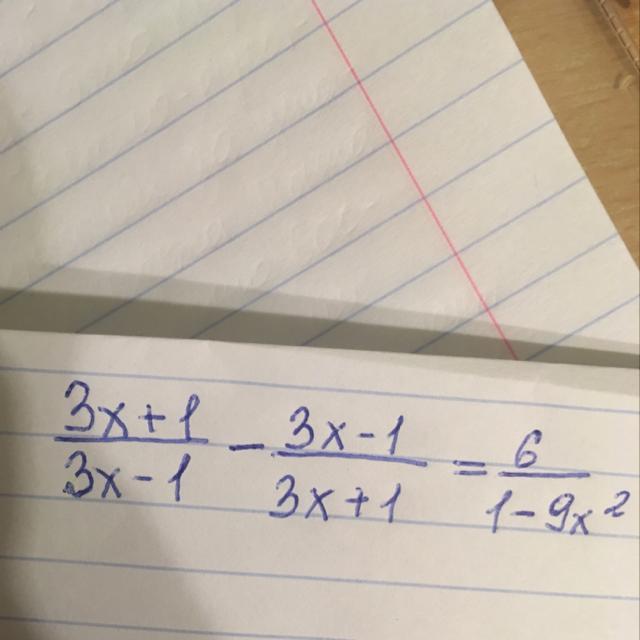 (3x+1)/(3x-1) - (3x-1)/(3x+1) = 6/(1-9x²)